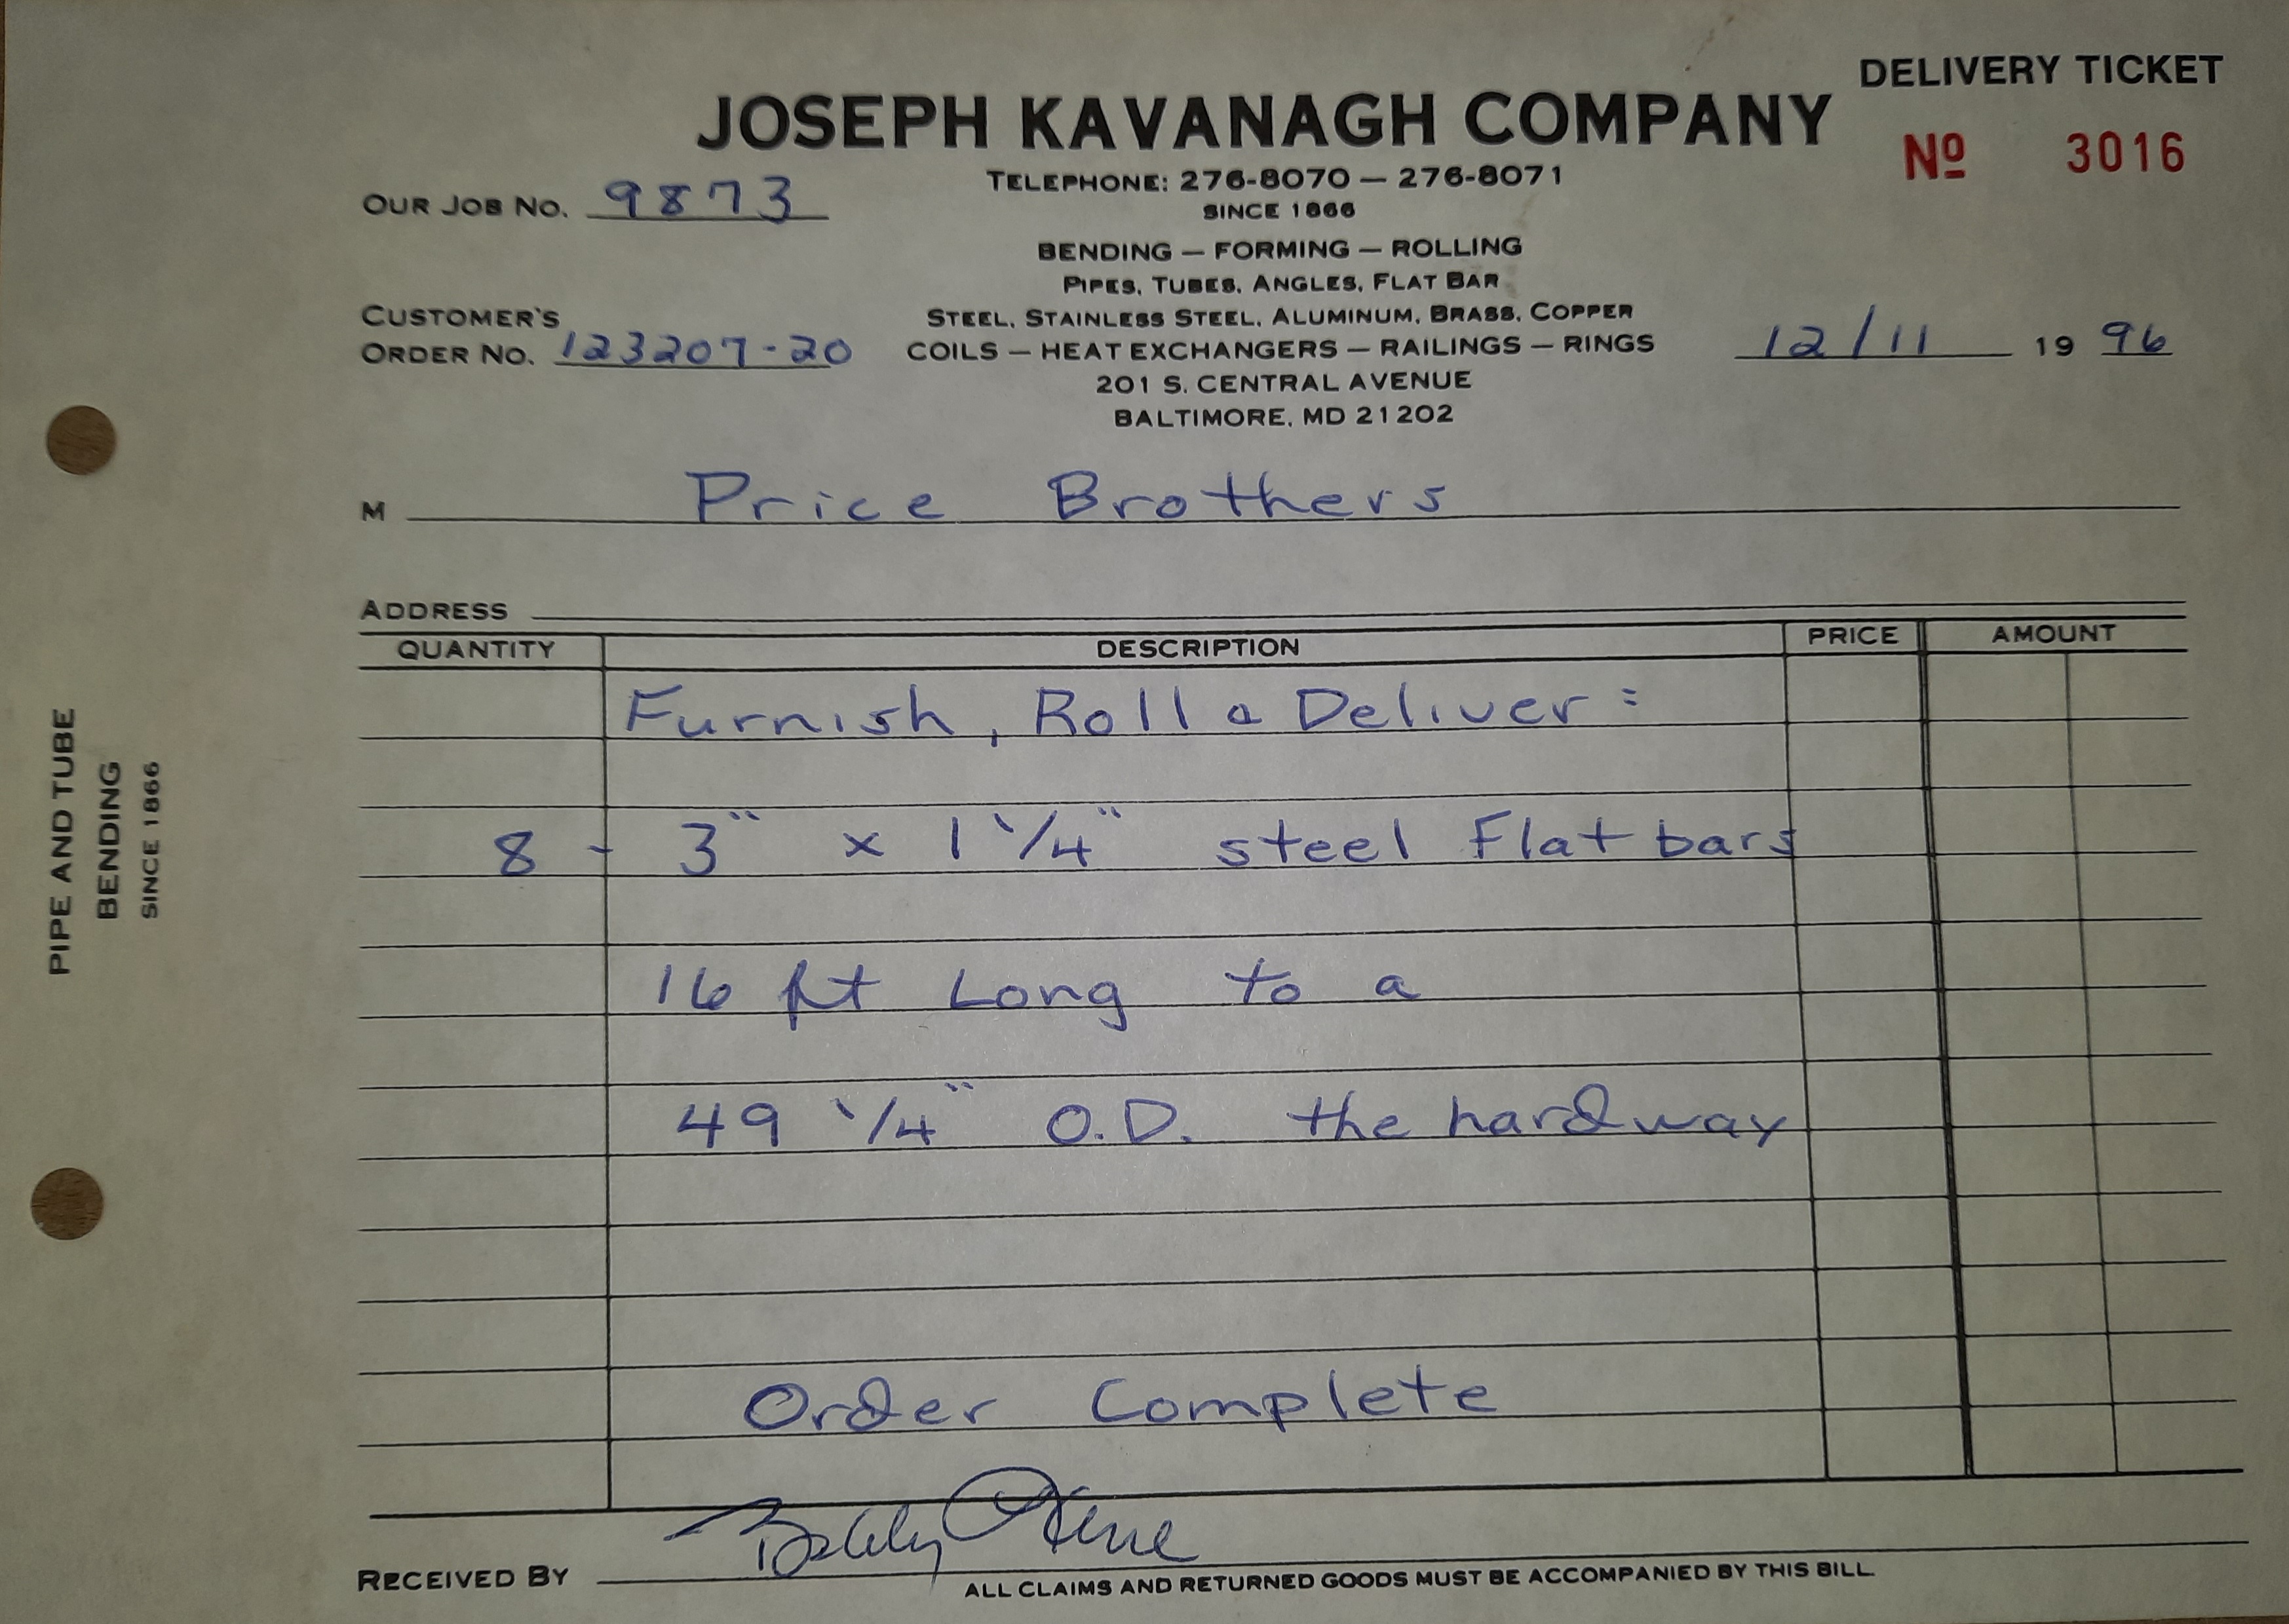 DELIVERY TICKET
JOSEPH KAVANAGH COMPANY
Nº 3016
TELEPHONE: 276-8070 — 276-8071
OUR JOB NO. 9873
SINCE 1866
BENDING — FORMING — ROLLING
PIPES, TUBES, ANGLES, FLAT BAR
CUSTOMER'S
ORDER NO. 123207-20
STEEL, STAINLESS STEEL, ALUMINUM, BRASS, COPPER
COILS — HEAT EXCHANGERS — RAILINGS — RINGS
12/11 19 96
201 S. CENTRAL AVENUE
BALTIMORE, MD 21202
M Price Brothers
ADDRESS
QUANTITY DESCRIPTION PRICE AMOUNT
Furnish, Roll & Deliver:
8 - 3" x 1 1/4" steel Flat bars
16 ft Long to a
49 1/4" O.D. the hardway
Order Complete
RECEIVED BY Bobby
ALL CLAIMS AND RETURNED GOODS MUST BE ACCOMPANIED BY THIS BILL.
PIPE AND TUBE
BENDING
SINCE 1866